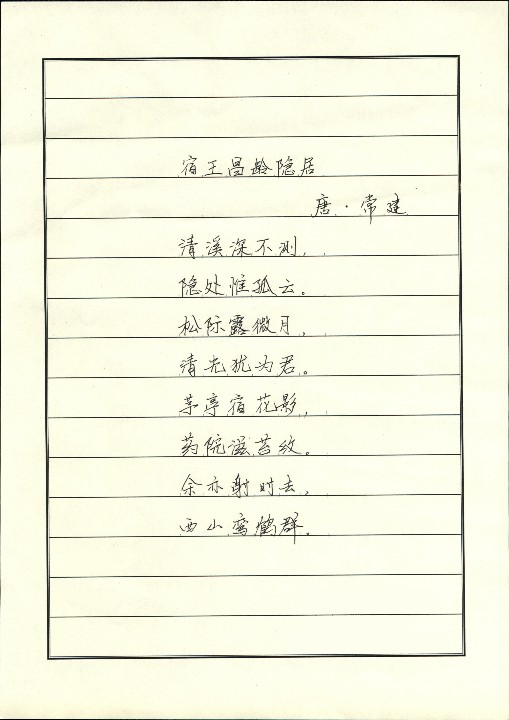 宿王昌龄隐居
唐·常建
清溪深不测,
隐处惟孤云。
松际露微月,
清光犹为君。
茅亭宿花影,
药院滋苔纹。
余亦射时去,
西山鸾鹤群。